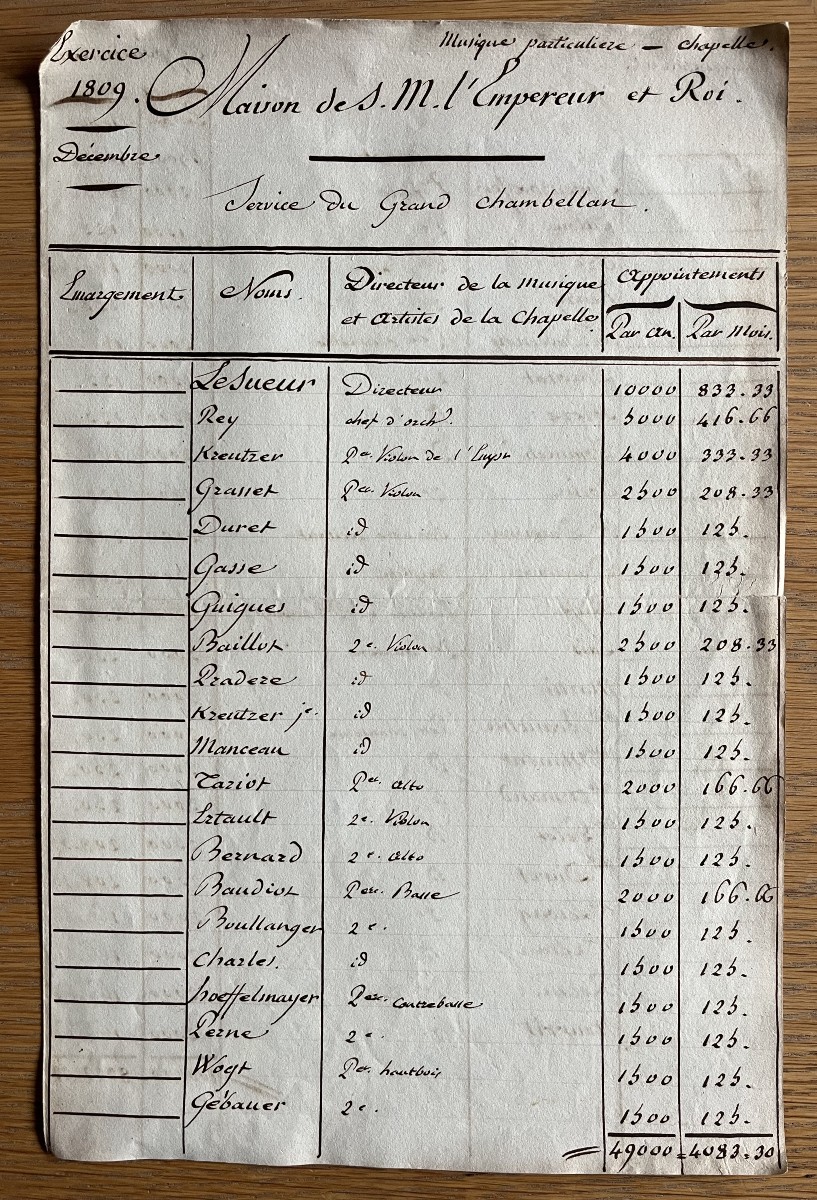 Exercice
1809.
Décembre
Musique particuliere — chapelle.
Maison de S. M. l'Empereur et Roi.
Service du Grand Chambellan.
Emargement Noms. Directeur de la musique et artistes de la Chapelle Appointements
Par an. Par Mois.
LeSueur Directeur 10000 833.33
Rey chef d'orch? 5000 416.66
Kreutzer Per. Violon de l'Empr 4000 333.33
Grasset Per. Violon 2500 208.33
Duret id 1500 125.
Gasse id 1500 125.
Guigues id 1500 125.
Baillot 2e. Violon 2500 208.33
Pradere id 1500 125.
Kreutzer je. id 1500 125.
Manceau id 1500 125.
Tariot Per. alto 2000 166.66
Ertault 2e. Violon 1500 125.
Bernard 2e. alto 1500 125.
Baudiot Pere. Basse 2000 166.66
Boullanger 2e. 1500 125.
Charles. id 1500 125.
hoeffelmayer Pere. Contrebasse 1500 125.
Perne 2e. 1500 125.
Wogt Per. hautbois 1500 125.
Gébauer 2e. 1500 125.
49000 = 4083.30